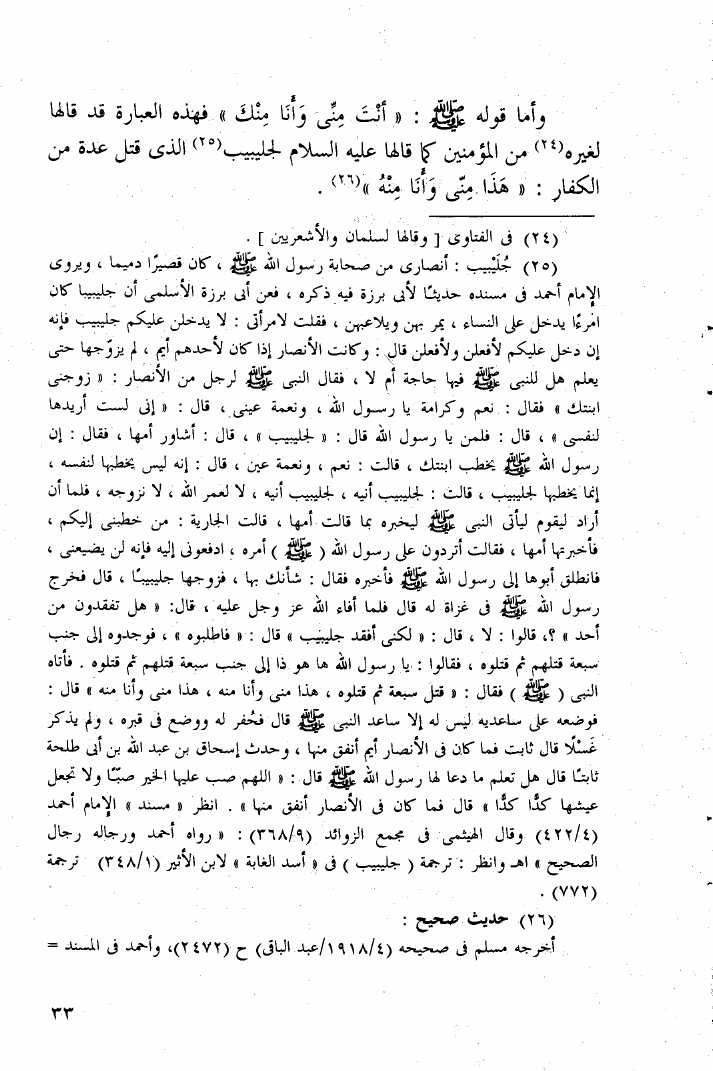 وأما قوله ﷺ : « أَنْتَ مِنِّى وَأَنَا مِنْكَ » فهذه العبارة قد قالها
لغيره(٢٤) من المؤمنين كما قالها عليه السلام لجليبيب(٢٥) الذى قتل عدة من
الكفار : « هَذَا مِنِّى وَأَنَا مِنْهُ »(٢٦) .
(٢٤) فى الفتاوى [ وقالها لسلمان والأشعريين ] .
(٢٥) جُلَيْبيب : أنصارى من صحابة رسول الله ﷺ ، كان قصيرًا دميما ، ويروى
الإمام أحمد فى مسنده حديثًا لأبى برزة فيه ذكره ، فعن أبى برزة الأسلمى أن جليبيبا كان
امرءًا يدخل على النساء ، يمر بهن ويلاعبهن ، فقلت لامرأتى : لا يدخلن عليكم جليبيب فإنه
إن دخل عليكم لأفعلن ولأفعلن قال : وكانت الأنصار إذا كان لأحدهم أيم ، لم يزوّجها حتى
يعلم هل للنبى ﷺ فيها حاجة أم لا ، فقال النبى ﷺ لرجل من الأنصار : « زوجنى
ابنتك » فقال : نعم وكرامة يا رسول الله ، ونعمة عينى ، قال : « إنى لست أريدها
لنفسى » ، قال : فلمن يا رسول الله قال : « لجليبيب » ، قال : أشاور أمها ، فقال : إن
رسول الله ﷺ يخطب ابنتك ، قالت : نعم ، ونعمة عين ، قال : إنه ليس يخطبها لنفسه ،
إنما يخطبها لجليبيب ، قالت : لجليبيب أنيه ، لجليبيب أنيه ، لا لعمر الله ، لا نزوجه ، فلما أن
أراد ليقوم ليأتى النبى ﷺ ليخبره بما قالت أمها ، قالت الجارية : من خطبنى إليكم ،
فأخبرتها أمها ، فقالت أتردون على رسول الله ( ﷺ ) أمره ، ادفعونى إليه فإنه لن يضيعنى ،
فانطلق أبوها إلى رسول الله ﷺ فأخبره فقال : شأنك بها ، فزوجها جليبيبًا ، قال فخرج
رسول الله ﷺ فى غزاة له قال فلما أفاء الله عز وجل عليه ، قال: « هل تفقدون من
أحد » ؟، قالوا : لا ، قال : « لكنى أفقد جليبيب » قال : « فاطلبوه » ، فوجدوه إلى جنب
سبعة قتلهم ثم قتلوه ، فقالوا : يا رسول الله ها هو ذا إلى جنب سبعة قتلهم ثم قتلوه . فأتاه
النبى ( ﷺ ) فقال : « قتل سبعة ثم قتلوه ، هذا منى وأنا منه ، هذا منى وأنا منه » قال :
فوضعه على ساعديه ليس له إلا ساعد النبى ﷺ قال فحُفر له ووضع فى قبره ، ولم يذكر
غَسْلًا قال ثابت فما كان فى الأنصار أيم أنفق منها ، وحدث إسحاق بن عبد الله بن أبى طلحة
ثابتًا قال هل تعلم ما دعا لها رسول الله ﷺ قال : « اللهم صب عليها الخير صبًّا ولا تجعل
عيشها كدًّا كدًّا » قال فما كان فى الأنصار أنفق منها » . انظر « مسند » الإمام أحمد
(٤٢٢/٤) وقال الهيثمى فى مجمع الزوائد (٣٦٨/٩) : « رواه أحمد ورجاله رجال
الصحيح » اهـ وانظر : ترجمة ( جليبيب ) فى « أسد الغابة » لابن الأثير (٣٤٨/١) ترجمة
(٧٧٢) .
(٢٦) حديث صحيح :
أخرجه مسلم فى صحيحه (١٩١٨/٤/عبد الباقى) ح (٢٤٧٢)، وأحمد فى المسند =
٣٣